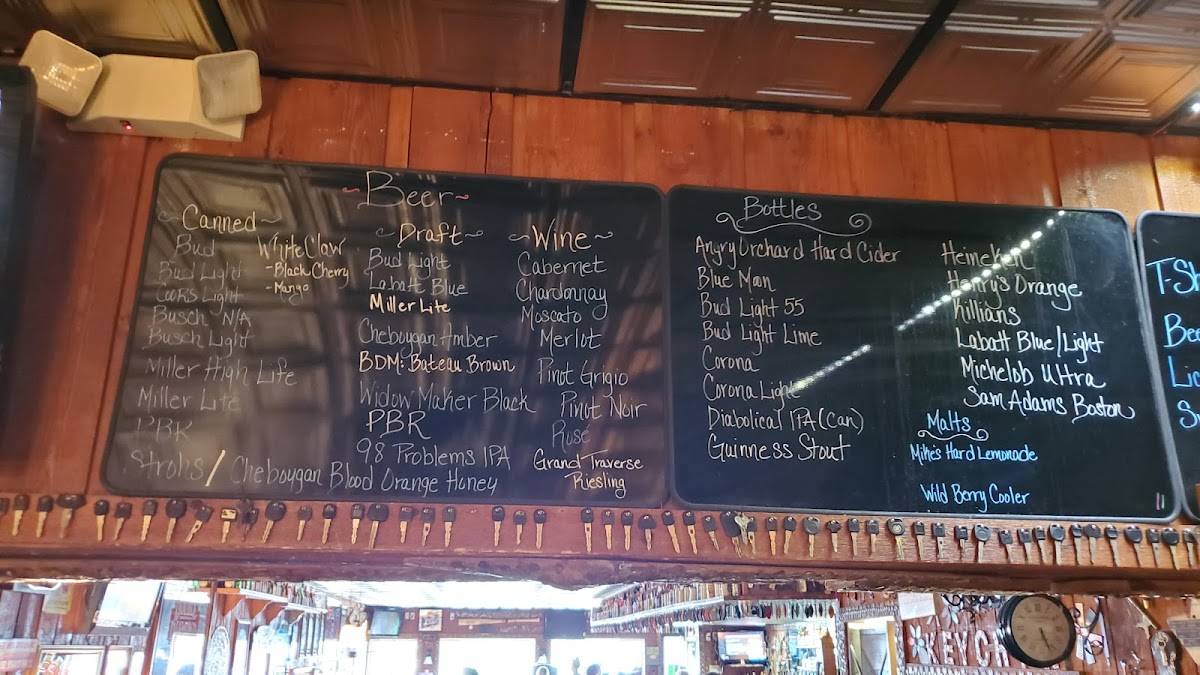 ~Beer~
~Canned~
Bud
Bud Light
COORS Light
Busch N/A
Busch Light
Miller High Life
Miller Lite
PBR
Strohs / Cheboygan Blood Orange Honey
White Claw
-Black Cherry
-Mango
~Draft~
Bud Light
Labatt Blue
Miller Lite
Cheboygan Amber
BDM: Bateau Brown
Widow Maker Black
PBR
98 Problems IPA
~Wine~
Cabernet
Chardonnay
Moscato
Merlot
Pinot Grigio
Pinot Noir
Rose
Grand Traverse
Riesling
Bottles
Angry Orchard Hard Cider
Blue Moon
Bud Light 55
Bud Light Lime
Corona
Corona Light
Diabolical IPA (Can)
Guinness Stout
Heineken
Henry's Orange
Killians
Labatt Blue/Light
Michelob Ultra
Sam Adams Boston
Malts
Mike's Hard Lemonade
Wild Berry Cooler
T-Sh
Bee